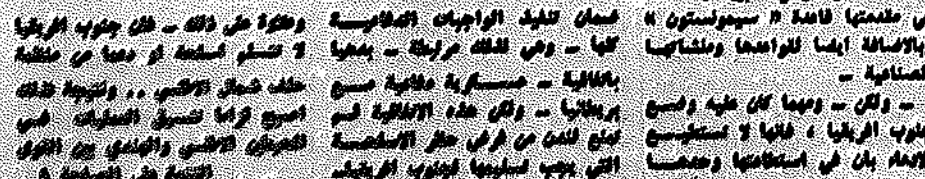 في مقدمتها قاعدة « سيمونستون »
بالاضافة ايضا لقواعدها ومنشاتها
الصناعية ــ
ــ ولكن ــ ومهما كان عليه وضع
جنوب افريقيا ، فانها لا تستطيع
الادعاء بان في استطاعتها وحدها
ضمان تنفيذ الواجبات الدفاعية
كلها ــ وهي لذلك مرتبطة ــ بدهيا
باتفاقية ــ عسكرية دفاعية مع
بريطانيا ــ ولكن هذه الاتفاقية لم
تمنع لندن من فرض حظر الاسلحة
التي يجب تسليمها لجنوب افريقيا.
وعلاوة على ذلك ــ فان جنوب افريقيا
لا تتسلم اسلحة او دعما من منظمة
حلف شمال الاطلسي .. ونتيجة لذلك
اصبح لزاما تنسيق العمليات في
المحيطين الاطلسي والهندي بين القوى
التتمة على الصفحة ٨